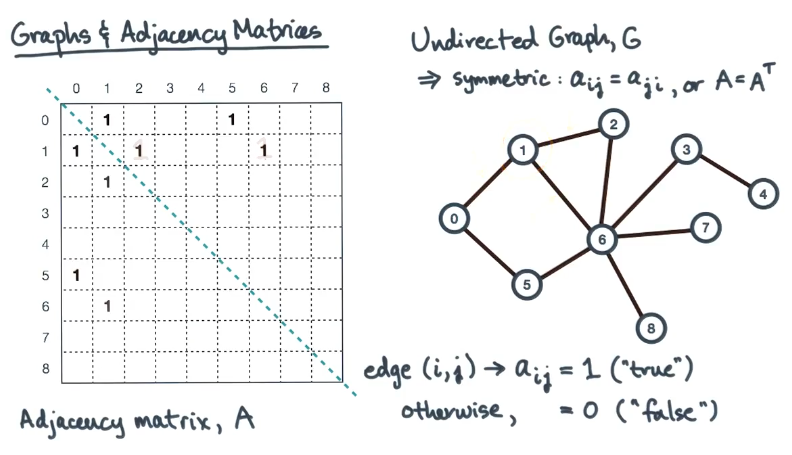 Graphs & Adjacency Matrices
0 1 2 3 4 5 6 7 8
0 1 1
1 1 1 1
2 1
3
4
5 1
6 1
7
8
Adjacency matrix, A
Undirected Graph, G
⇒ symmetric: aij = aji, or A = A^T
2
1
3
4
0
7
6
5
8
edge (i,j) → aij = 1 ("true")
otherwise, = 0 ("false")